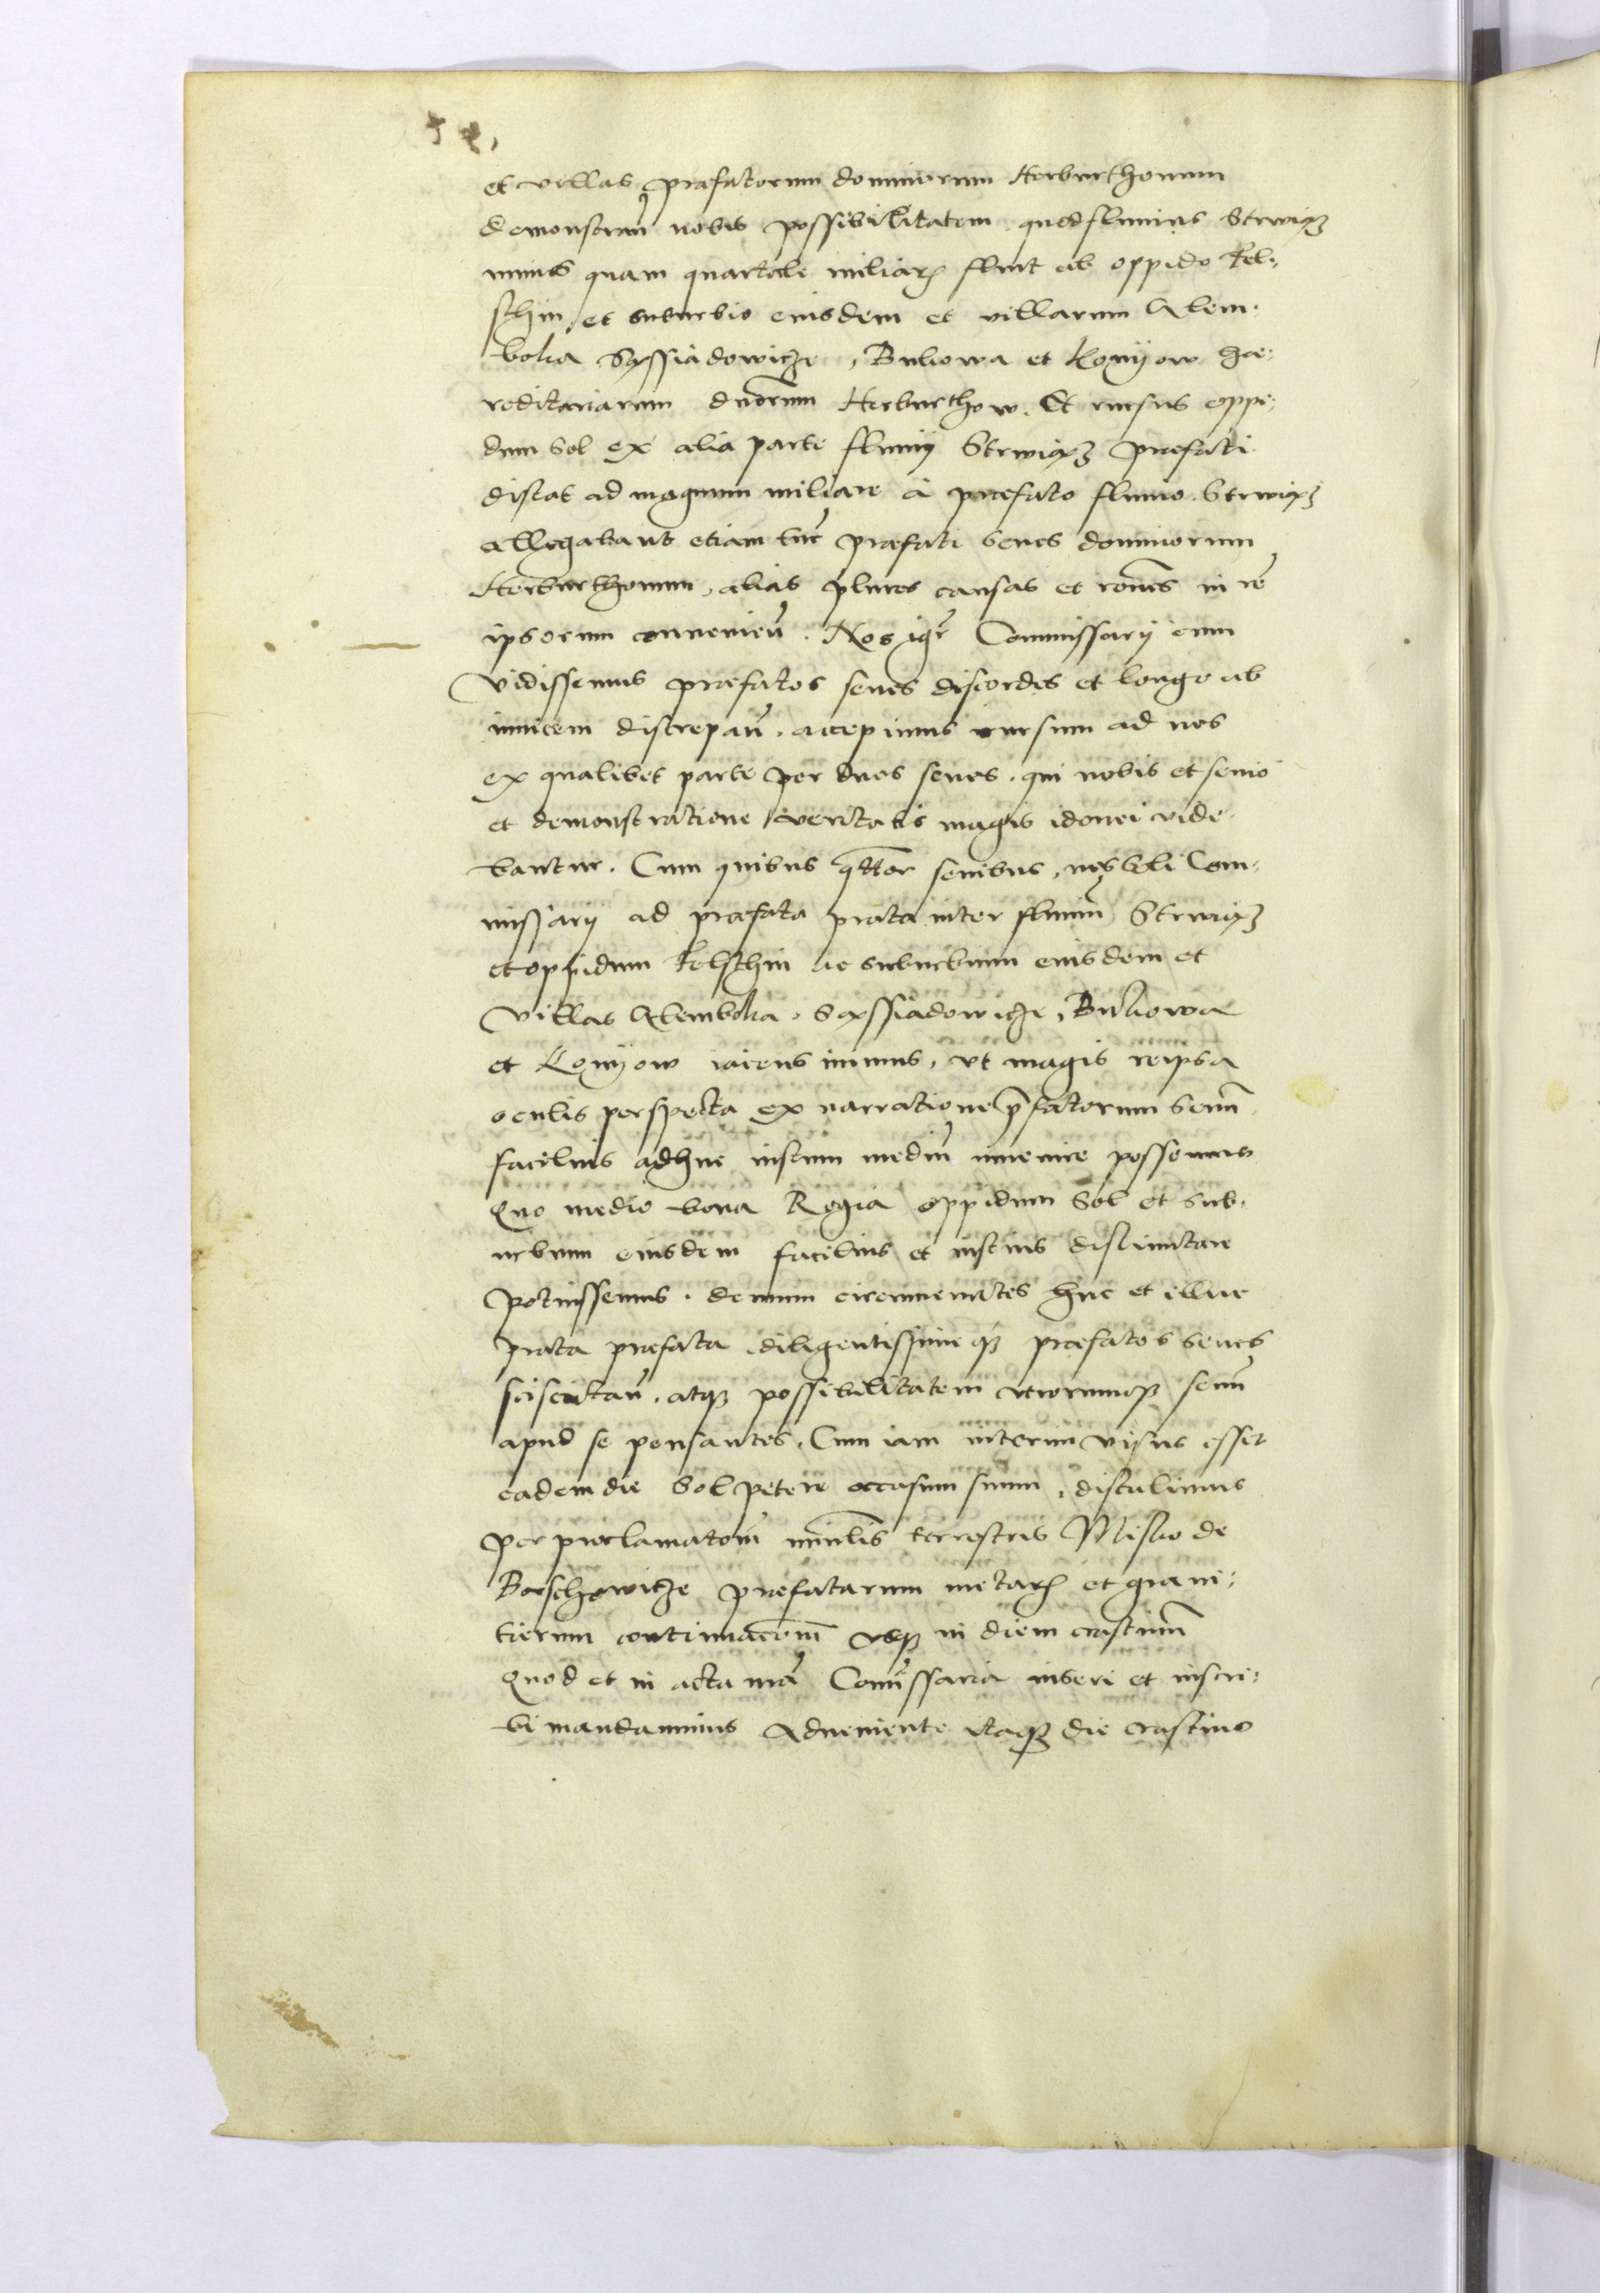 et villas praefatorum dominorum Herburthonum
demonstran̄ nobis possibilitatem quod fluuius Strwiąż
minus quam quartale miliarꝝ fluit ab oppido Fel:
sthin, et suburbio eiusdem et villarum Glem:
boka Sąssiadowicze, Bukowa et Konÿow hæ:
reditariarum dnorum Herburthow. Et rursus oppi:
dum Sol ex alia parte fluuij Strwiąż præfati
distat ad magnum miliare à præfato fluuio Strwiąż
allegabant etiam tūc præfati senes dominorum
Herburthonum, alias plures causas et rones in rē
ipsorum conuenien̄. Nos igr̄ Commissarij cum
vidissemus præfatos senes discordes et longe ab
inuicem discrepan̄. accepimus rursum ad nos
ex qualibet parte per duos senes. qui nobis et senio
et demonstratione veritatis magis idonei vide:
bantur. Cum quibus qttor senibus, nos Com:
missarij ad præfata prata inter fluuiū Strwiąż
et oppidum Felsthin ac suburbium eiusdem et
villas Glemboka. Sąssiadowicze, Bukowa
et Konÿow iacens iuimus, vt magis reipsa
oculis perspecta ex narratione p̄fatorum senū
facilius adhuc iustum mediū inuenire possemus
Quo medio bona Regia oppidum Sol et sub:
urbium eiusdem facilius et iustius dislimitare
potuissemus. demum circumeuntes huc et illuc
prata præfata diligentissime qꝫ præfatos senes
sciscitan̄. atqꝫ possibilitatem vtrorumqꝫ senū
apud se pensantes. Cum iam interim visus esset
eadem die Sol petere occasum suum, distulimus
per proclamatōm minlis terrestris Misko de
Borschowicze præfatarum metarꝝ et grani:
tierum continuacōm vsqꝫ in diem crastinū
Quod et in acta nrā Comissaria inseri et inscri:
bi mandauimus Adueniente itaqꝫ die crastino